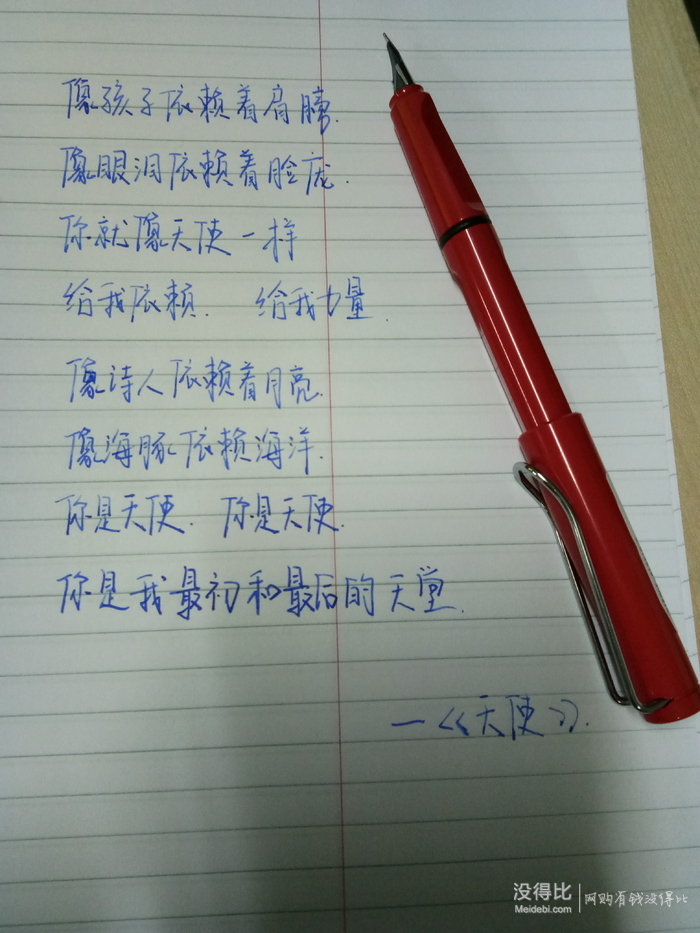 像孩子依赖着肩膀.
像眼泪依赖着脸庞.
你就像天使一样
给我依赖. 给我力量.
像诗人依赖着月亮.
像海豚依赖海洋.
你是天使. 你是天使.
你是我最初和最后的天堂.
—《天使》.
没得比 | 网购有钱没得比
Meidebi.com